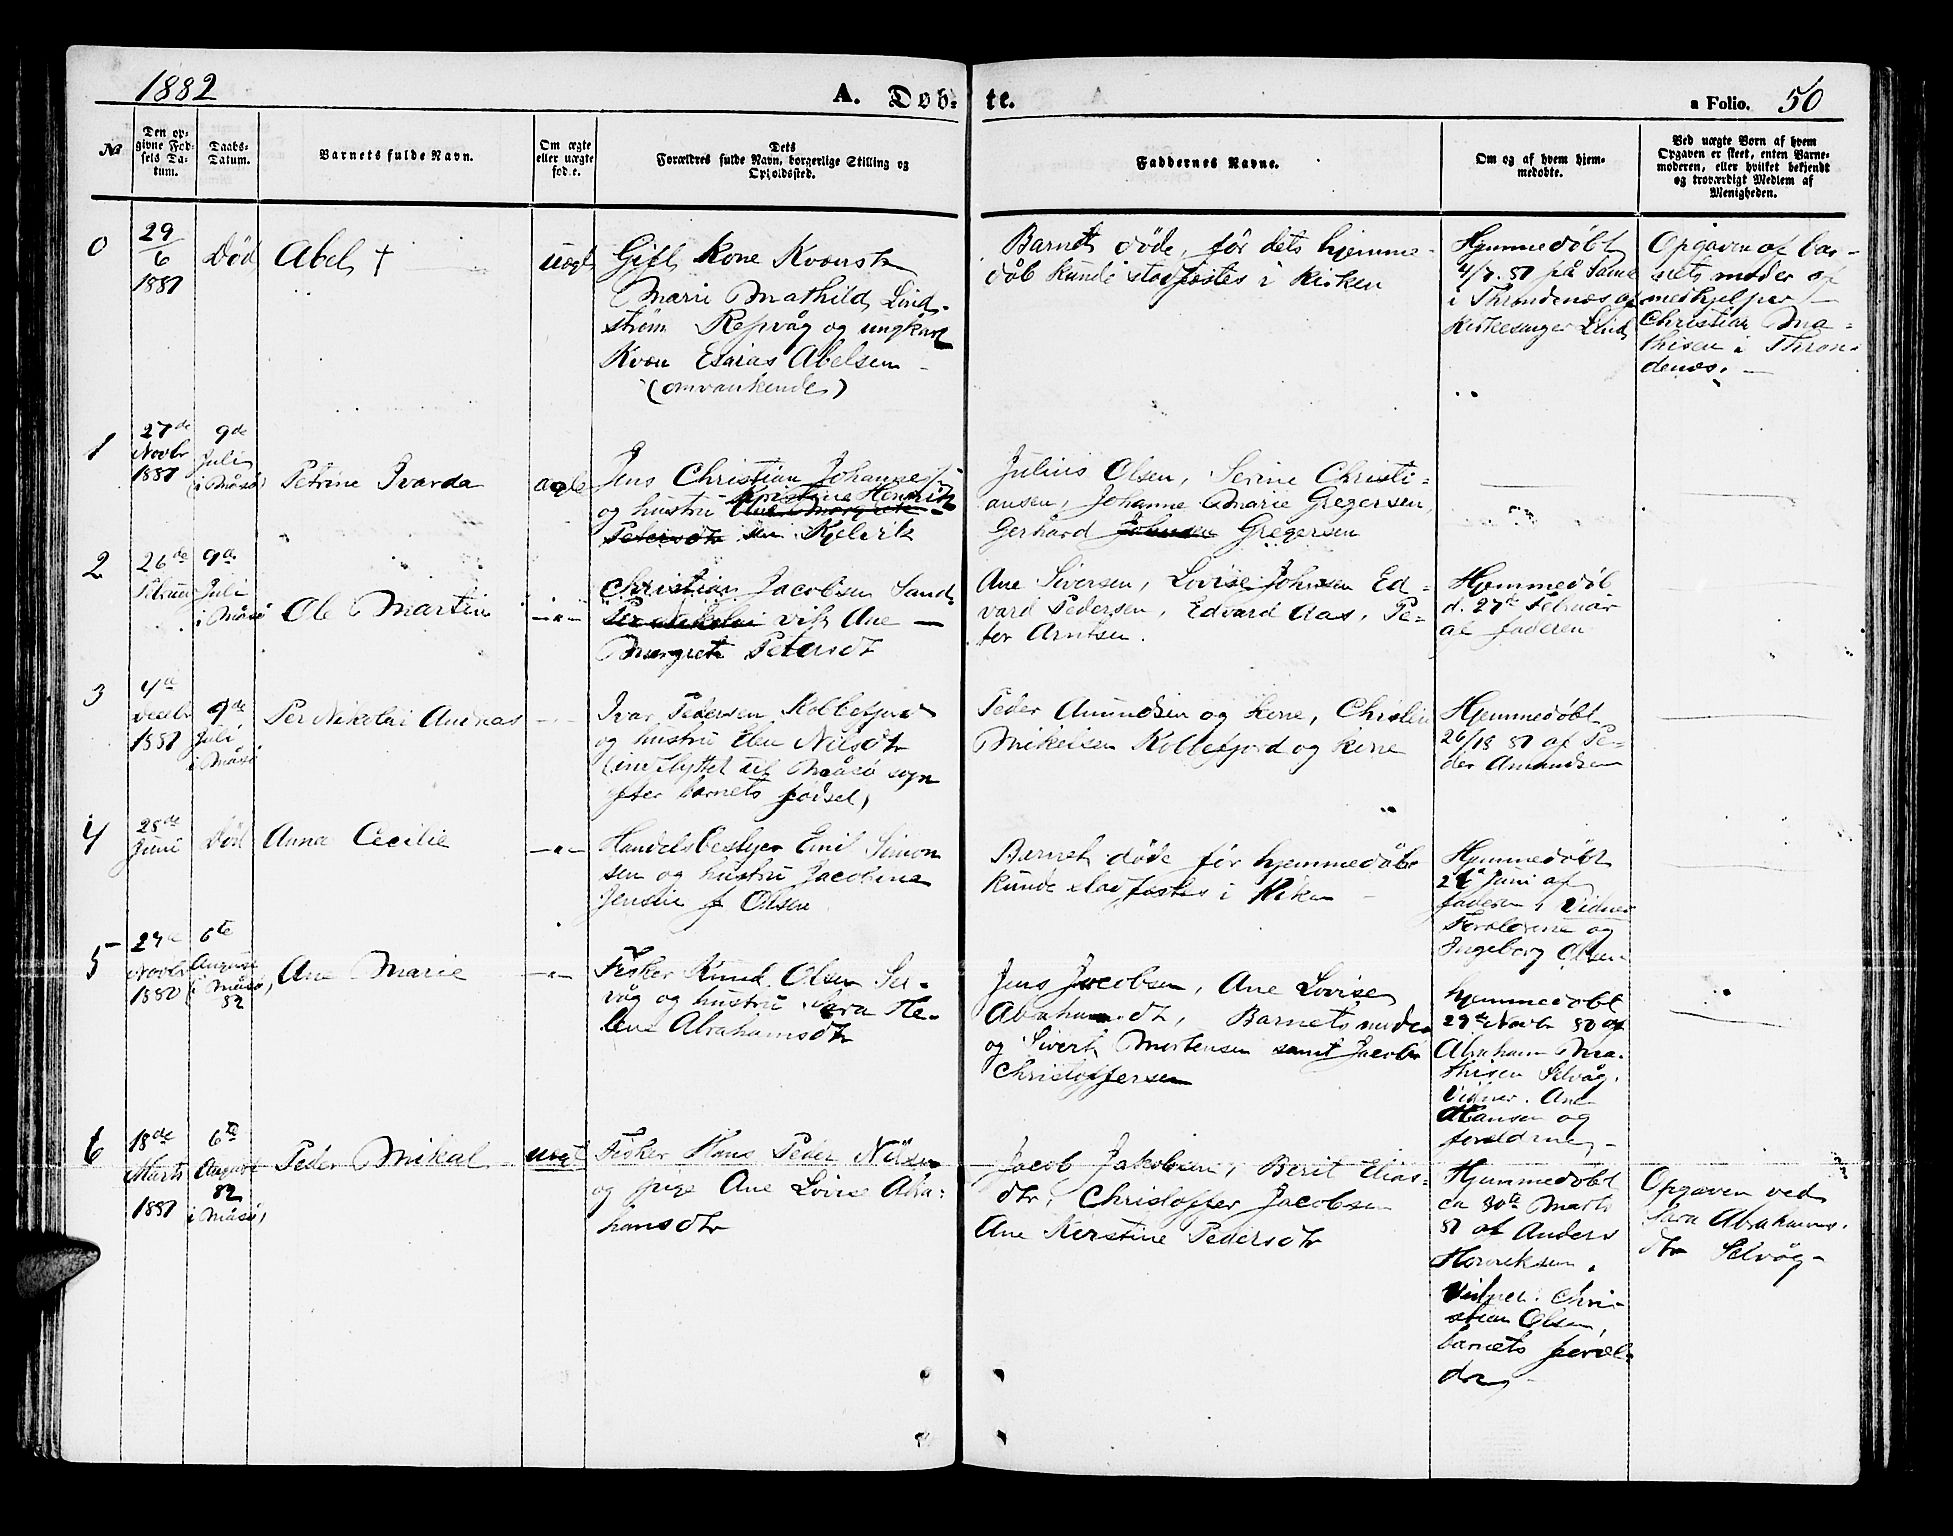 1882
A. Døb-
te.
a Folio. 50
No
Den op-
givne Fød-
sels Da-
tum.
Daabs-
Datum.
Barnets fulde Navn.
Om ægte
eller uægte
født.
Dets
Forældres fulde Navn, borgerlige Stilling og
Opholdssted.
Faddernes Navne.
Om og af hvem hjem-
medøbt.
Ved uægte Børn af hvem
Opgaven er skeet, enten Barne-
moderen, eller hvilket bekjendt
og troværdigt Medlem af
Menigheden.
0
29
6
1881
Død
Abel †
uægt
Gift Kone Kvænsk
Marie Mathild Lind-
strøm Repvåg og ungkarl
Kvæn Esaias Abelsen
(omvankende)
Barnet døde, før dets hjemme-
dåb kunde stadfæstes i kirken
Hjemmedøbt
4/7. 81 på
i Throndenæs af
Kirkesanger Lind
Opgaven af bar-
nets moder af
medhjelper
Christian Ma-
thisen i Thron-
denæs.
1
27de
Novbr
1881
9de
Juli
(i Måsø)
Petrine Ivarda
ægte
Jens Christian Johannesen
og hustru Kristine Henrik-
sen Kjelvik
Julius Olsen, Serine Christi-
ansen, Johanne Marie Gregersen,
Gerhard Gregersen
2
26de
Februar
9de
Juli
i Måsø
Ole Martin
-"-
Christian Jacobsen Sand-
vik Ane
Margrete Petersdtr
Ane Siversen, Lovise Johnsen Ed-
vard Pedersen, Edvard Aas, Pe-
ter Arntsen.
Hjemmedøb
d. 27de Februar
af faderen
3
4de
Decbr
1881
9de
Juli
i Måsø
Per Nikolai Andreas
-"-
Ivar Pedersen Kobbefjord
og hustru Elen Nilsdtr
(indflyttet til Måsø sogn
efter barnets fødsel)
Peder Amundsen og kone, Christen
Mikelsen Kobbefjord og kone
Hjemmedøbt
26/12 81 af Pe-
der Amundsen
4
25de
Juni
Død
Anna Cecilie
-"-
Handelsbestyrer Emil Simon
sen og hustru Jacobine
f. Olsen
Barnet døde før hjemmedåbe
kunde stadfæstes i Kirken
Hjemmedøbt
Juni af
faderen, vidner
Forældrene og
Ingeborg Olsen
5
27de
Novbr
1880
6te
August
(i Måsø)
82
Ane Marie
-"-
Fisker Knud Olsen Sel-
våg og hustru Sara He-
lene Abrahamsdtr
Jens Jacobsen, Ane Lovise
Abrahamsdtr, Barnets moder
og Sivert Mortensen samt Jacob
Christoffersen
hjemmedøbt
29de Novbr 80 af
Abraham Ma-
thisen Selvåg.
Vidner. Ane
Hansen og
forældrene,
6
18de
Marts
1881
6te
August
82
i Måsø,
Peder Mikal
uægt
Fisker Hans Peder Nilsen
og pige Ane Lovise Abra-
hamsdtr
Jacob Jakobsen, Berit Elias-
dtr, Christoffer Jacobsen
Ane Kirstine Pedersdtr
Hjemmedøbt
ca 30te Marts
81 af Anders
Henriksen.
Vidner: Chri-
stian Olsen,
barnets foræl-
dre,
Opgaven ved
Sara Abrahams-
dtr Selvåg